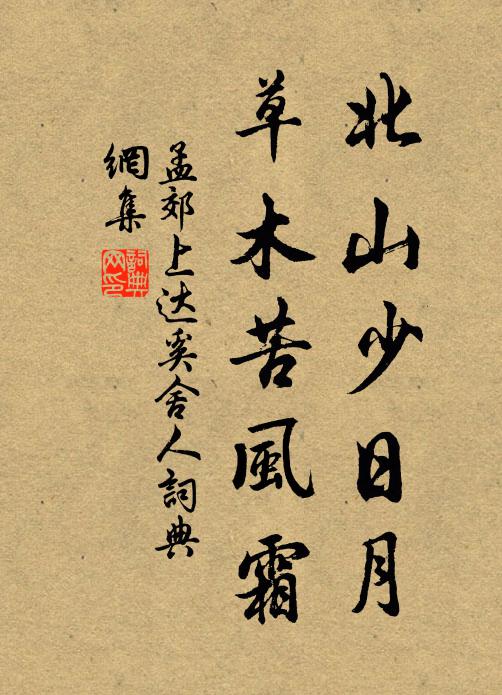 北山少日月
草木苦風霜
孟郊上达奚舍人詞典
網集
詞典
网印